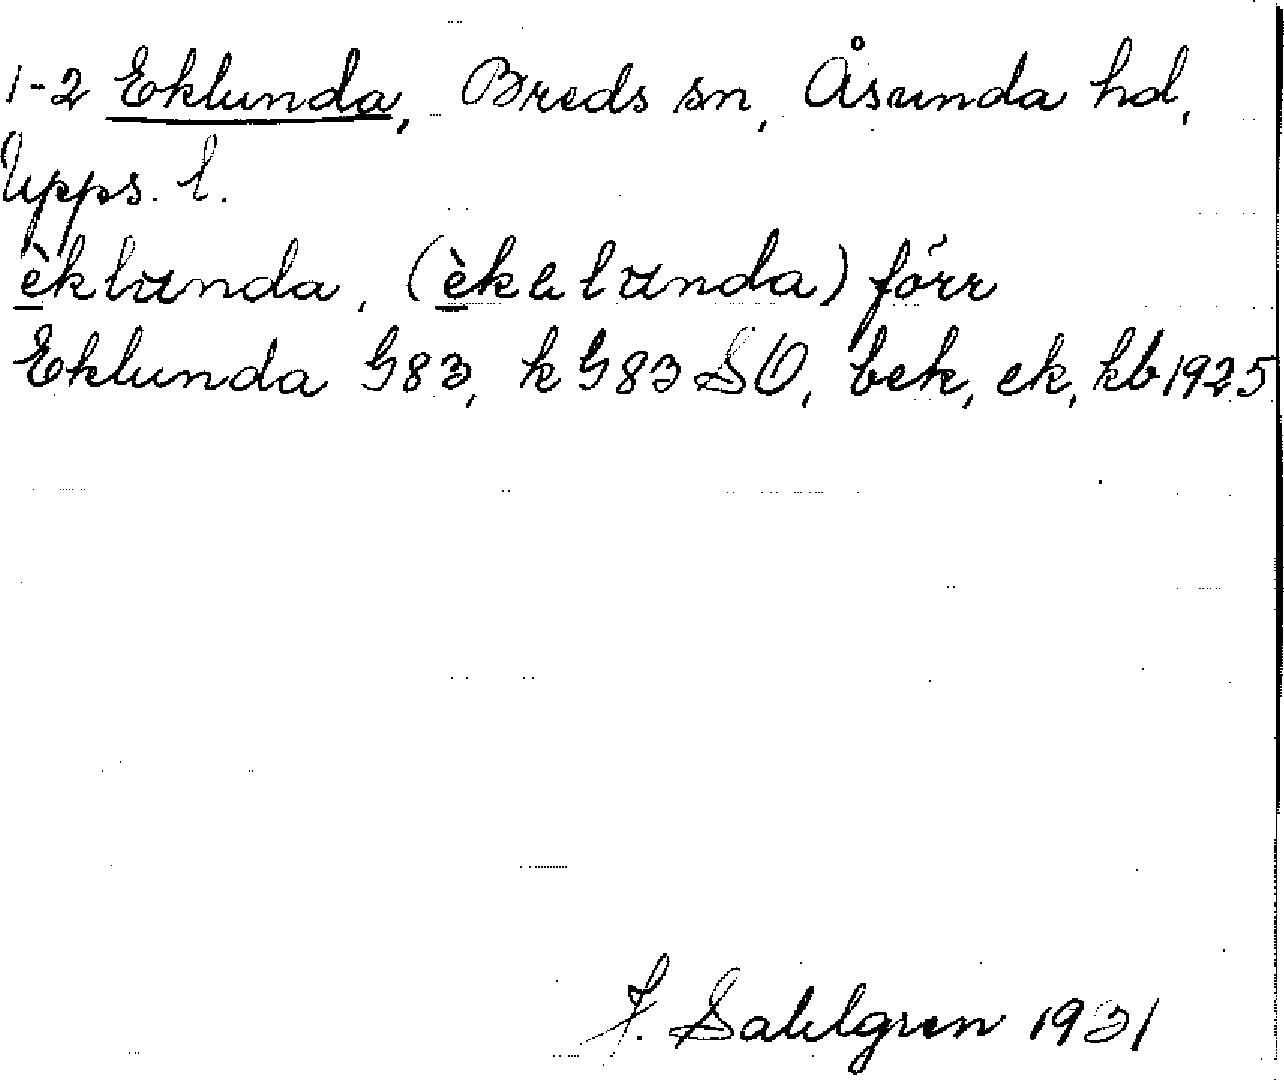 1-2 Eklunda, Breds sn, Åsunda hd,
Upps. l.
èklunda, (èkalunda) förr
Eklunda G83, k G83 SO, bek, ek, kb 1925
J. Sahlgren 1931